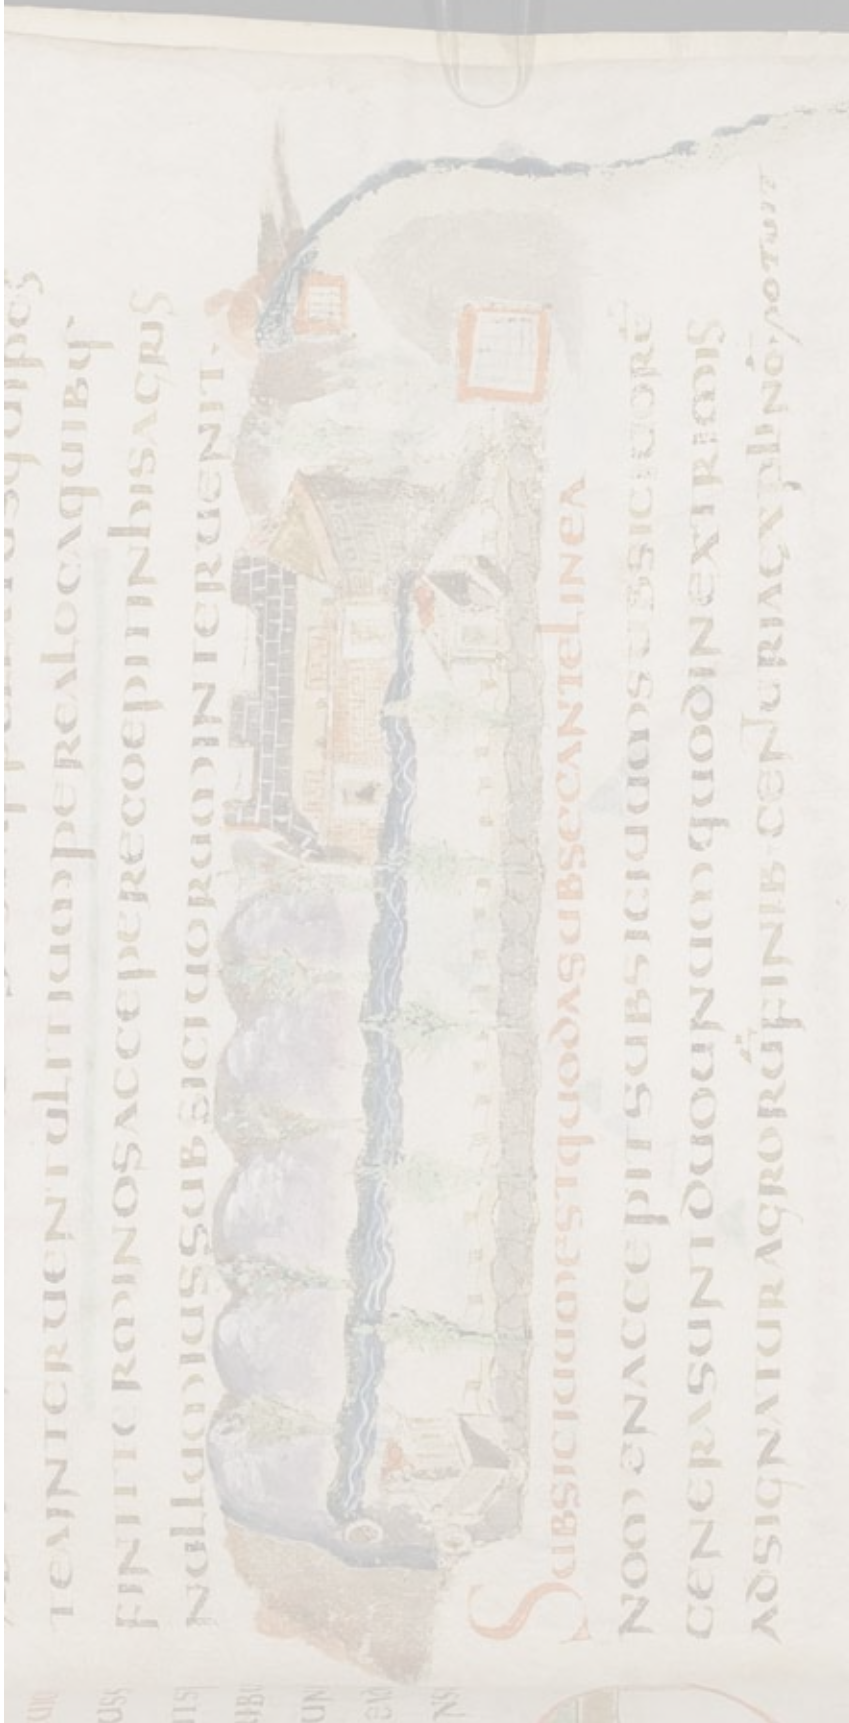 TEAINTERUENTULITIUMPEREALOCAQUIBUS
FINITITERMINOSACCEPERECOEPITINHISAGRIS
NULLUMIUSSUBSICIUORUMINTERUENIT·
SUBSICIUUMESTQUODASUBSECANTELINEA
NOMENACCEPITSUBSICIUUMSUBSICIUORŪ
GENERASUNTDUOUNUMQUODINEXTREMIS
ADSIGNATURAGRORŪFINIB·CENTURIAEXPLINŌPOTUIT